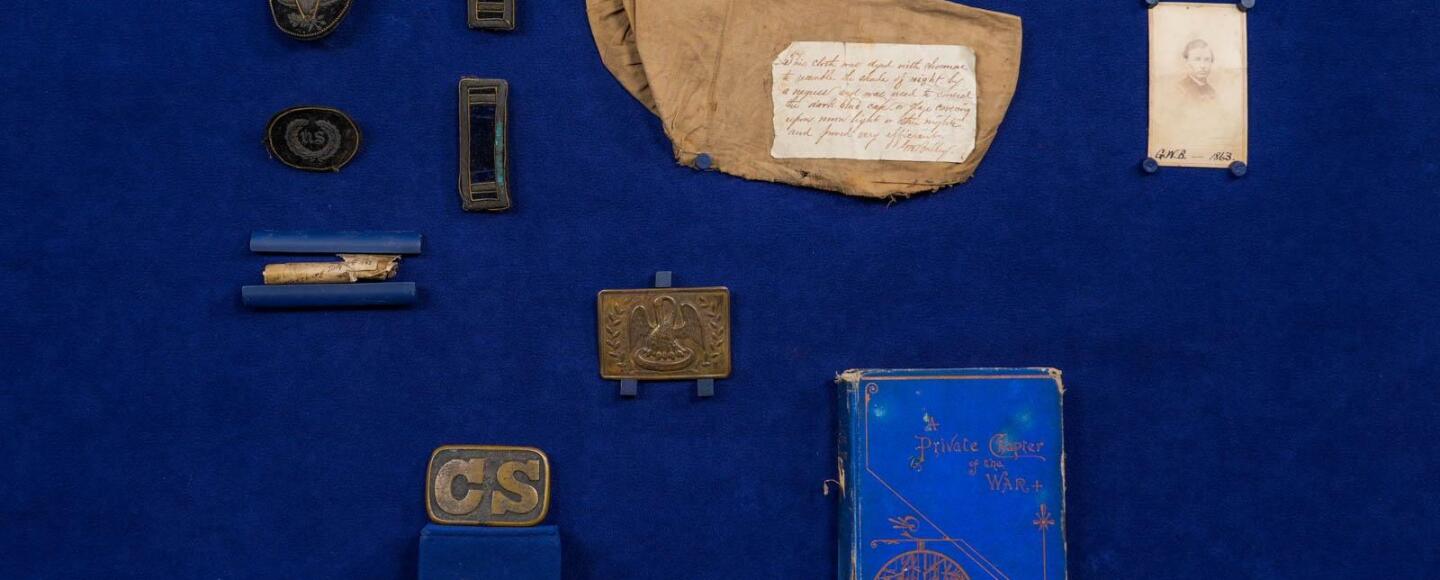 US
This cloth was dyed with
to resemble the shade of night by
a negress and was used to conceal
the dark blue cap or covering
upon moon light or nights
and proved very efficient
G.W.B. — 1863.
CS
A
Private Chapter
of the
WAR